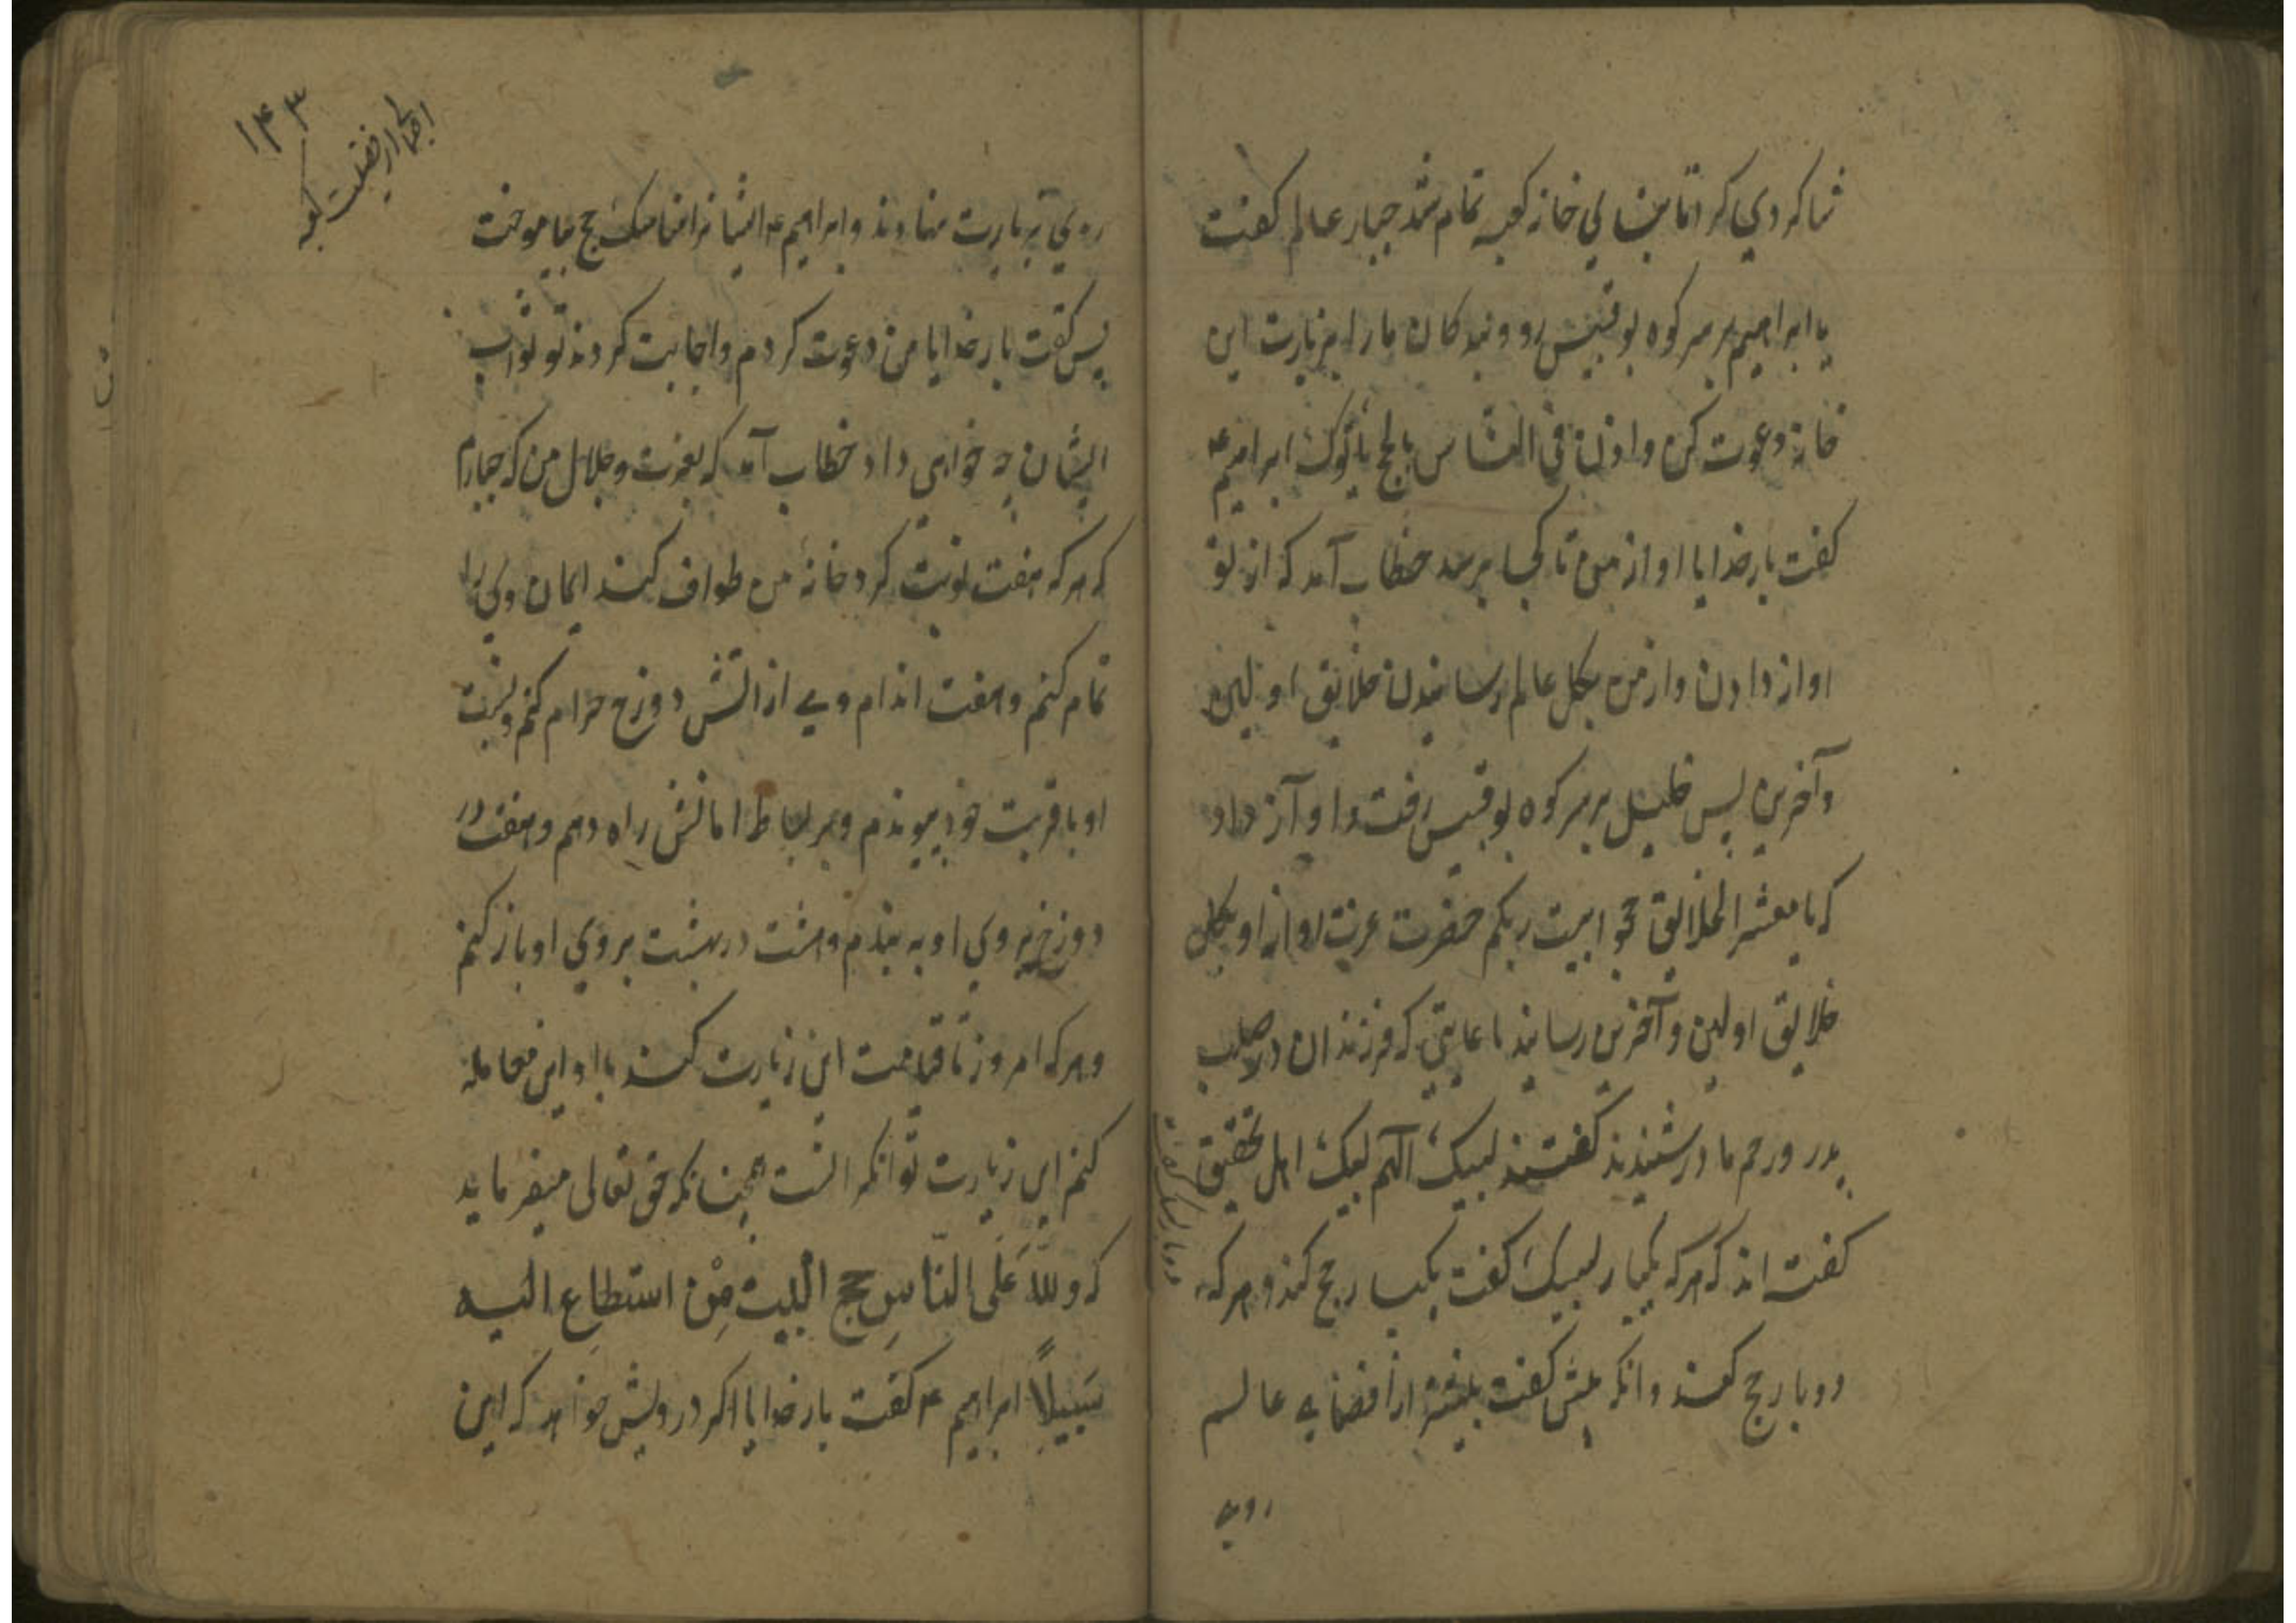 شاکردی کرد تا بنای خانه کعبه تمام شد جبار عالم کفت
یا ابراهیم بر سر کوه بوقبیس رو و بندکان ما را بزیارت این
خانه دعوت کن و اذن فی الناس بالحج یاتوک ابراهیم ع
کفت بارخدایا اواز من تا کجا برسد خطاب آمد که از تو
اواز دادن و از من بکل عالم رسانیدن خلایق اولین
و آخرین پس خلیل بر سر کوه بوقبیس رفت و اوآز داد
که یا معشر الخلایق حجوا بیت ربکم حضرت عزت اواز او بکل
خلایق اولین و آخرین رسانید تا غایتی که فرزندان در صلب
پدر و رحم مادر شنیدند کفتند لبیک اللهم لبیک اهل تحقیق
کفته اند که هر که یکبار لبیک کفت یکبار حج کند و هر که
دوبار لبیک کفت
دوبار حج کند و انکه بیش کفت بیشتر از اقصای عالم
روی
۱۴۳
روی بزیارت نهادند و ابراهیم ع ایشانرا مناسک حج بیاموخت
پس کفت بارخدایا من دعوت کردم و اجابت کردند تو ثواب
ایشان چه خواهی داد خطاب آمد که بعزت و جلال من که جبارم
که هر که هفت نوبت کرد خانهٔ من طواف کند ایمان ویرا
تمام کنم و هفت اندام وی از اتش دوزخ حرام کنم و نسبت
او با قربت خود پیوندم و بر بساط امانش راه دهم و هفت در
دوزخ بروی او به بندم و هشت در بهشت بروی او باز کنم
و هر که امروز تا قیامت این زیارت کند با او این معامله
کنم این زیارت توانکرانست همچنانکه حق تعالی میفرماید
که وللّه عَلَی النّاسِ حج البیت مِن استطاع الیه
سَبیلاً ابراهیم ع کفت بارخدایا اکر درویش خواهد که این